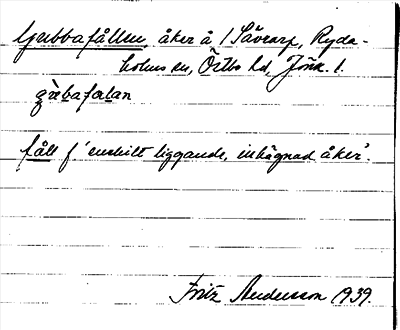 Gubbafållen, åker å 1 Sävrarp, Ryda-
holms sn, Östbo hd, Jönk. l.
gùbafålan
fåll f 'enskilt liggande, inhägnad åker'.
Fritz Andersson 1939.